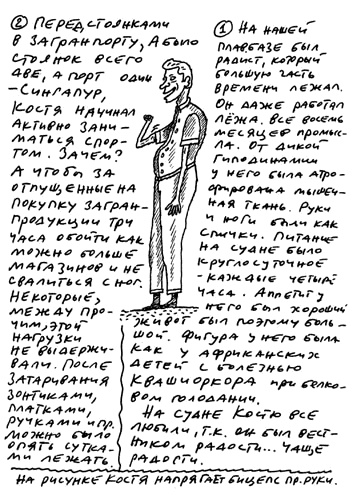 ① На нашей
плавбазе был
радист, который
большую часть
времени лежал.
Он даже работал
лёжа. Все восемь
месяцев промыс-
ла. От дикой
гиподинамии
у него была атро-
фирована мышеч-
ная ткань. Руки
и ноги были как
спички. Питание
на судне было
круглосуточное
-каждые четыре
часа. Аппетит у
него был хороший
живот был поэтому боль-
шой. Фигура у него была
как у африканских
детей с болезнью
квашиоркора при белко-
вом голодании.
На судне Костю все
любили, т.к. он был вест-
ником радости... чаще
радости.
② Перед стоянками
в загранпорту, а было
стоянок всего
две, а порт один
-Сингапур,
Костя начинал
активно зани-
маться спор-
том. Зачем?
А чтобы за
отпущенные на
покупку загран-
продукции три
часа обойти как
можно больше
магазинов и не
свалиться с ног.
Некоторые,
между про-
чим, этой
нагрузки
не выдержи-
вали. После
затаривания
зонтиками,
платками,
ручками и пр.
можно было
опять сутка-
ми лежать.
На рисунке Костя напрягает бицепс пр. руки.